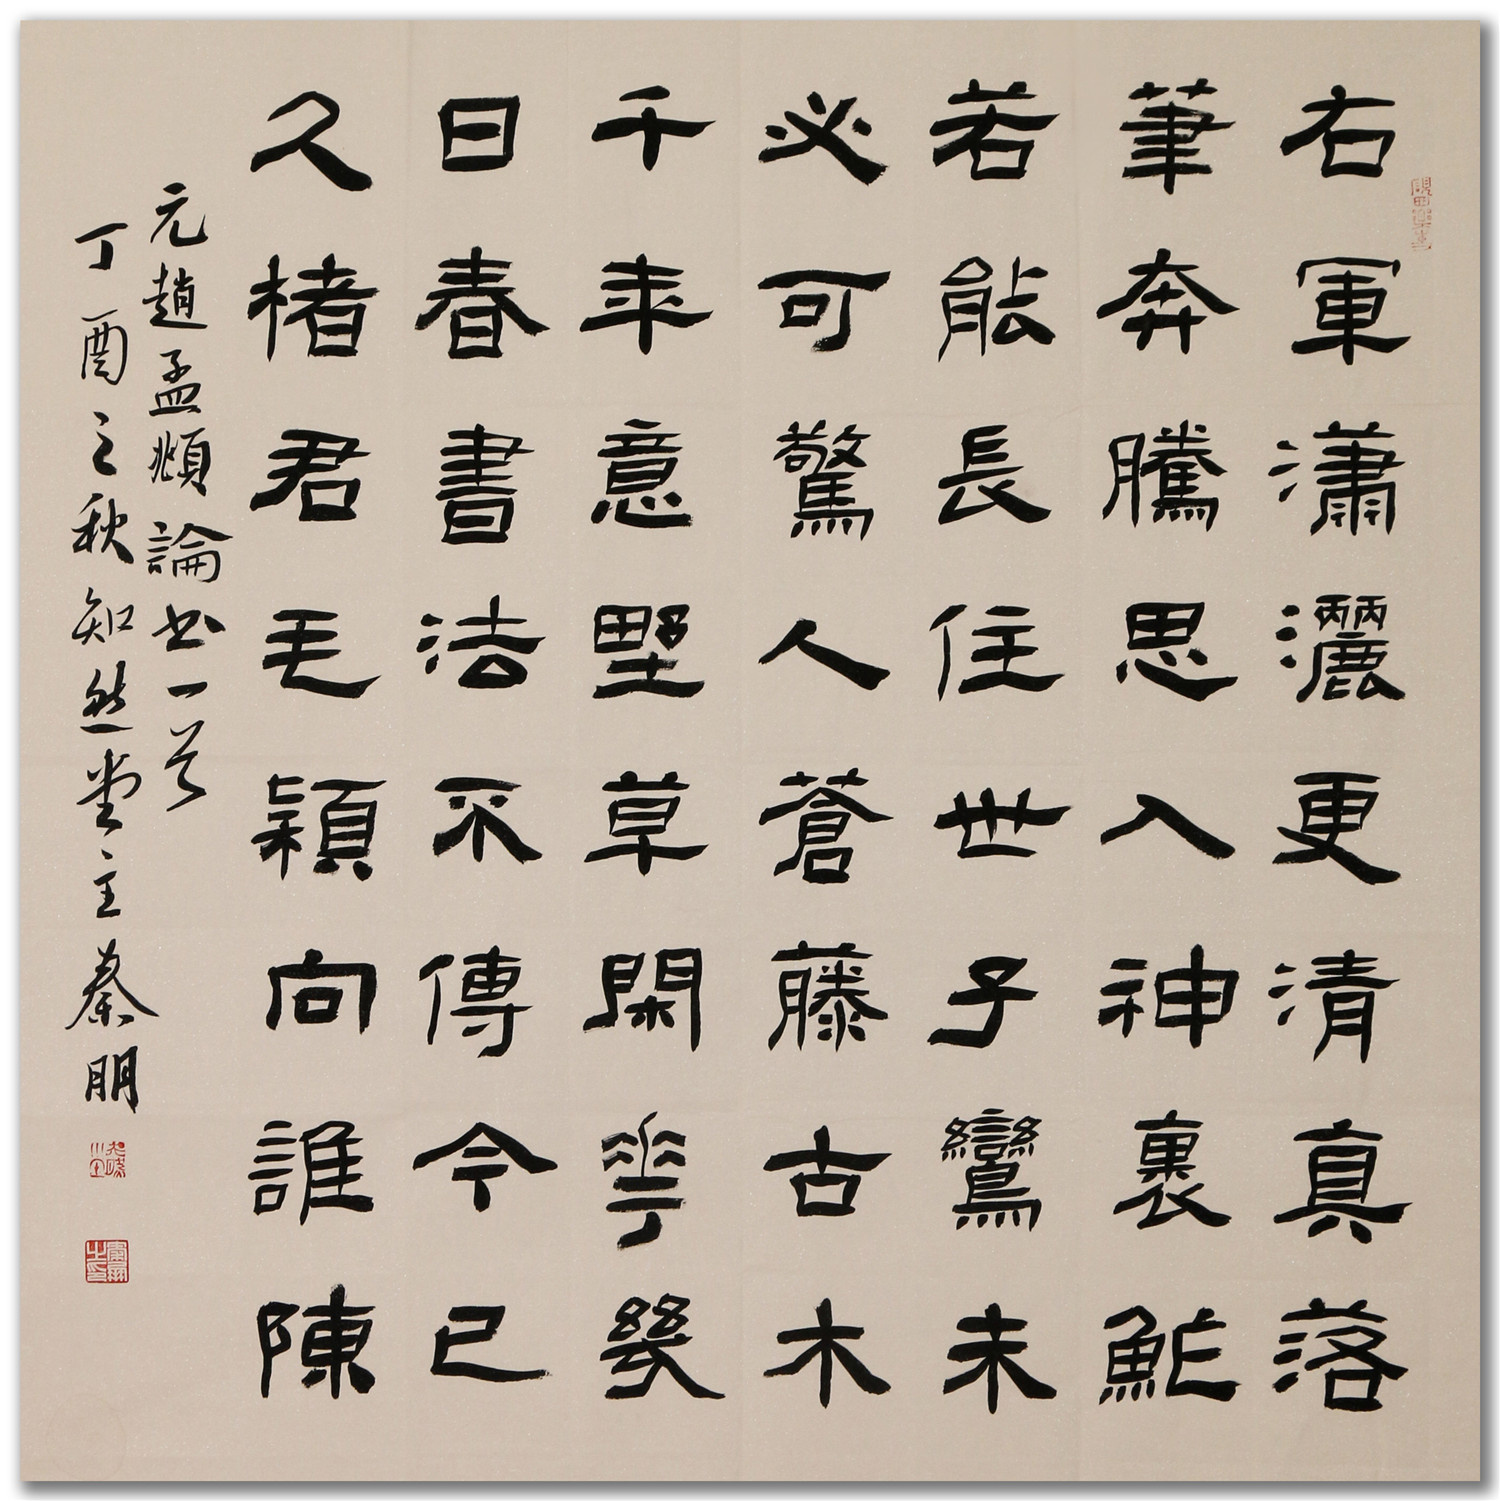 右軍瀟灑更清真落
筆奔騰思入神裏鮓
若能長住世子鸞未
必可驚人蒼藤古木
千年意野草閑華幾
日春書法不傳今已
久楮君毛穎向誰陳
元趙孟頫論書一首
丁酉之秋知然堂主秦朋